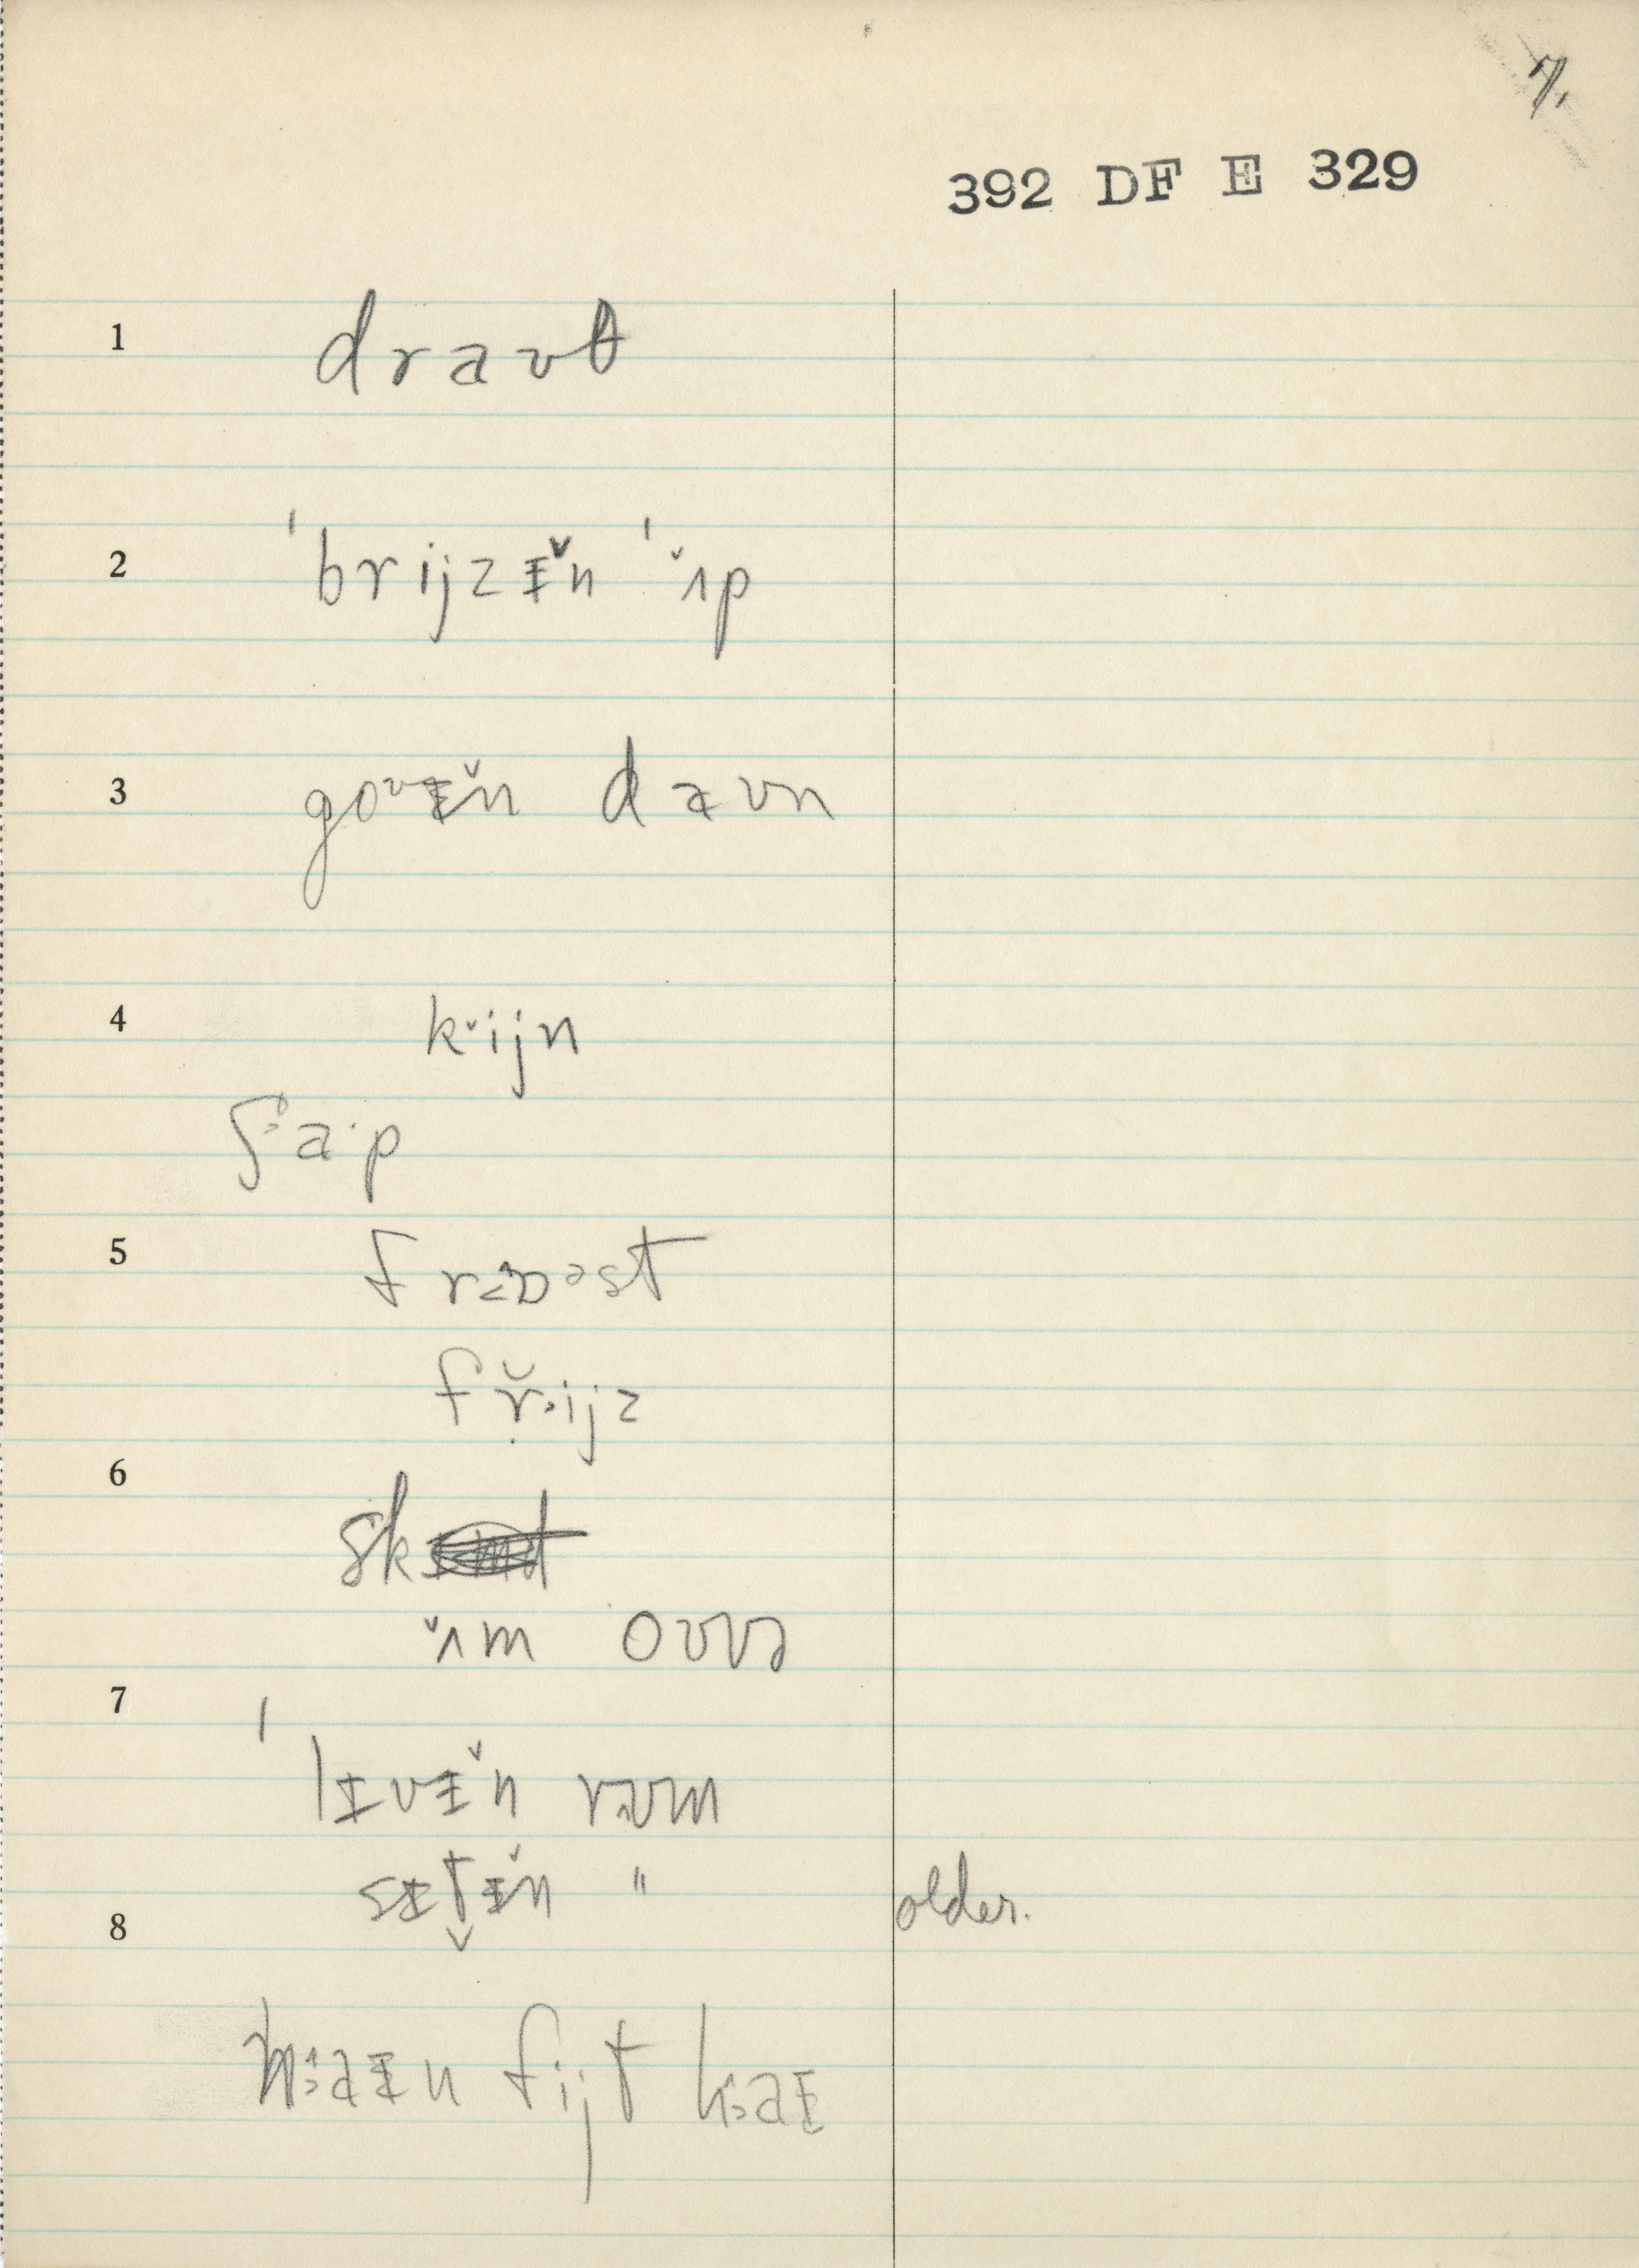 7.
392 DF E 329
1 dravt
2 ˈbrijzɪ̆n ˈ˘ɪp
3 goʊɪ̆n daʊn
4 k˘ijn
ʃaˑp
5 frɒst
fr̆ijz
6 sk
˘ɪm oʊvə
7 ˈlɪvɪ̆n rʊm
sɪt̬ɪ̆n " older.
8 haɪn fijt haɪ